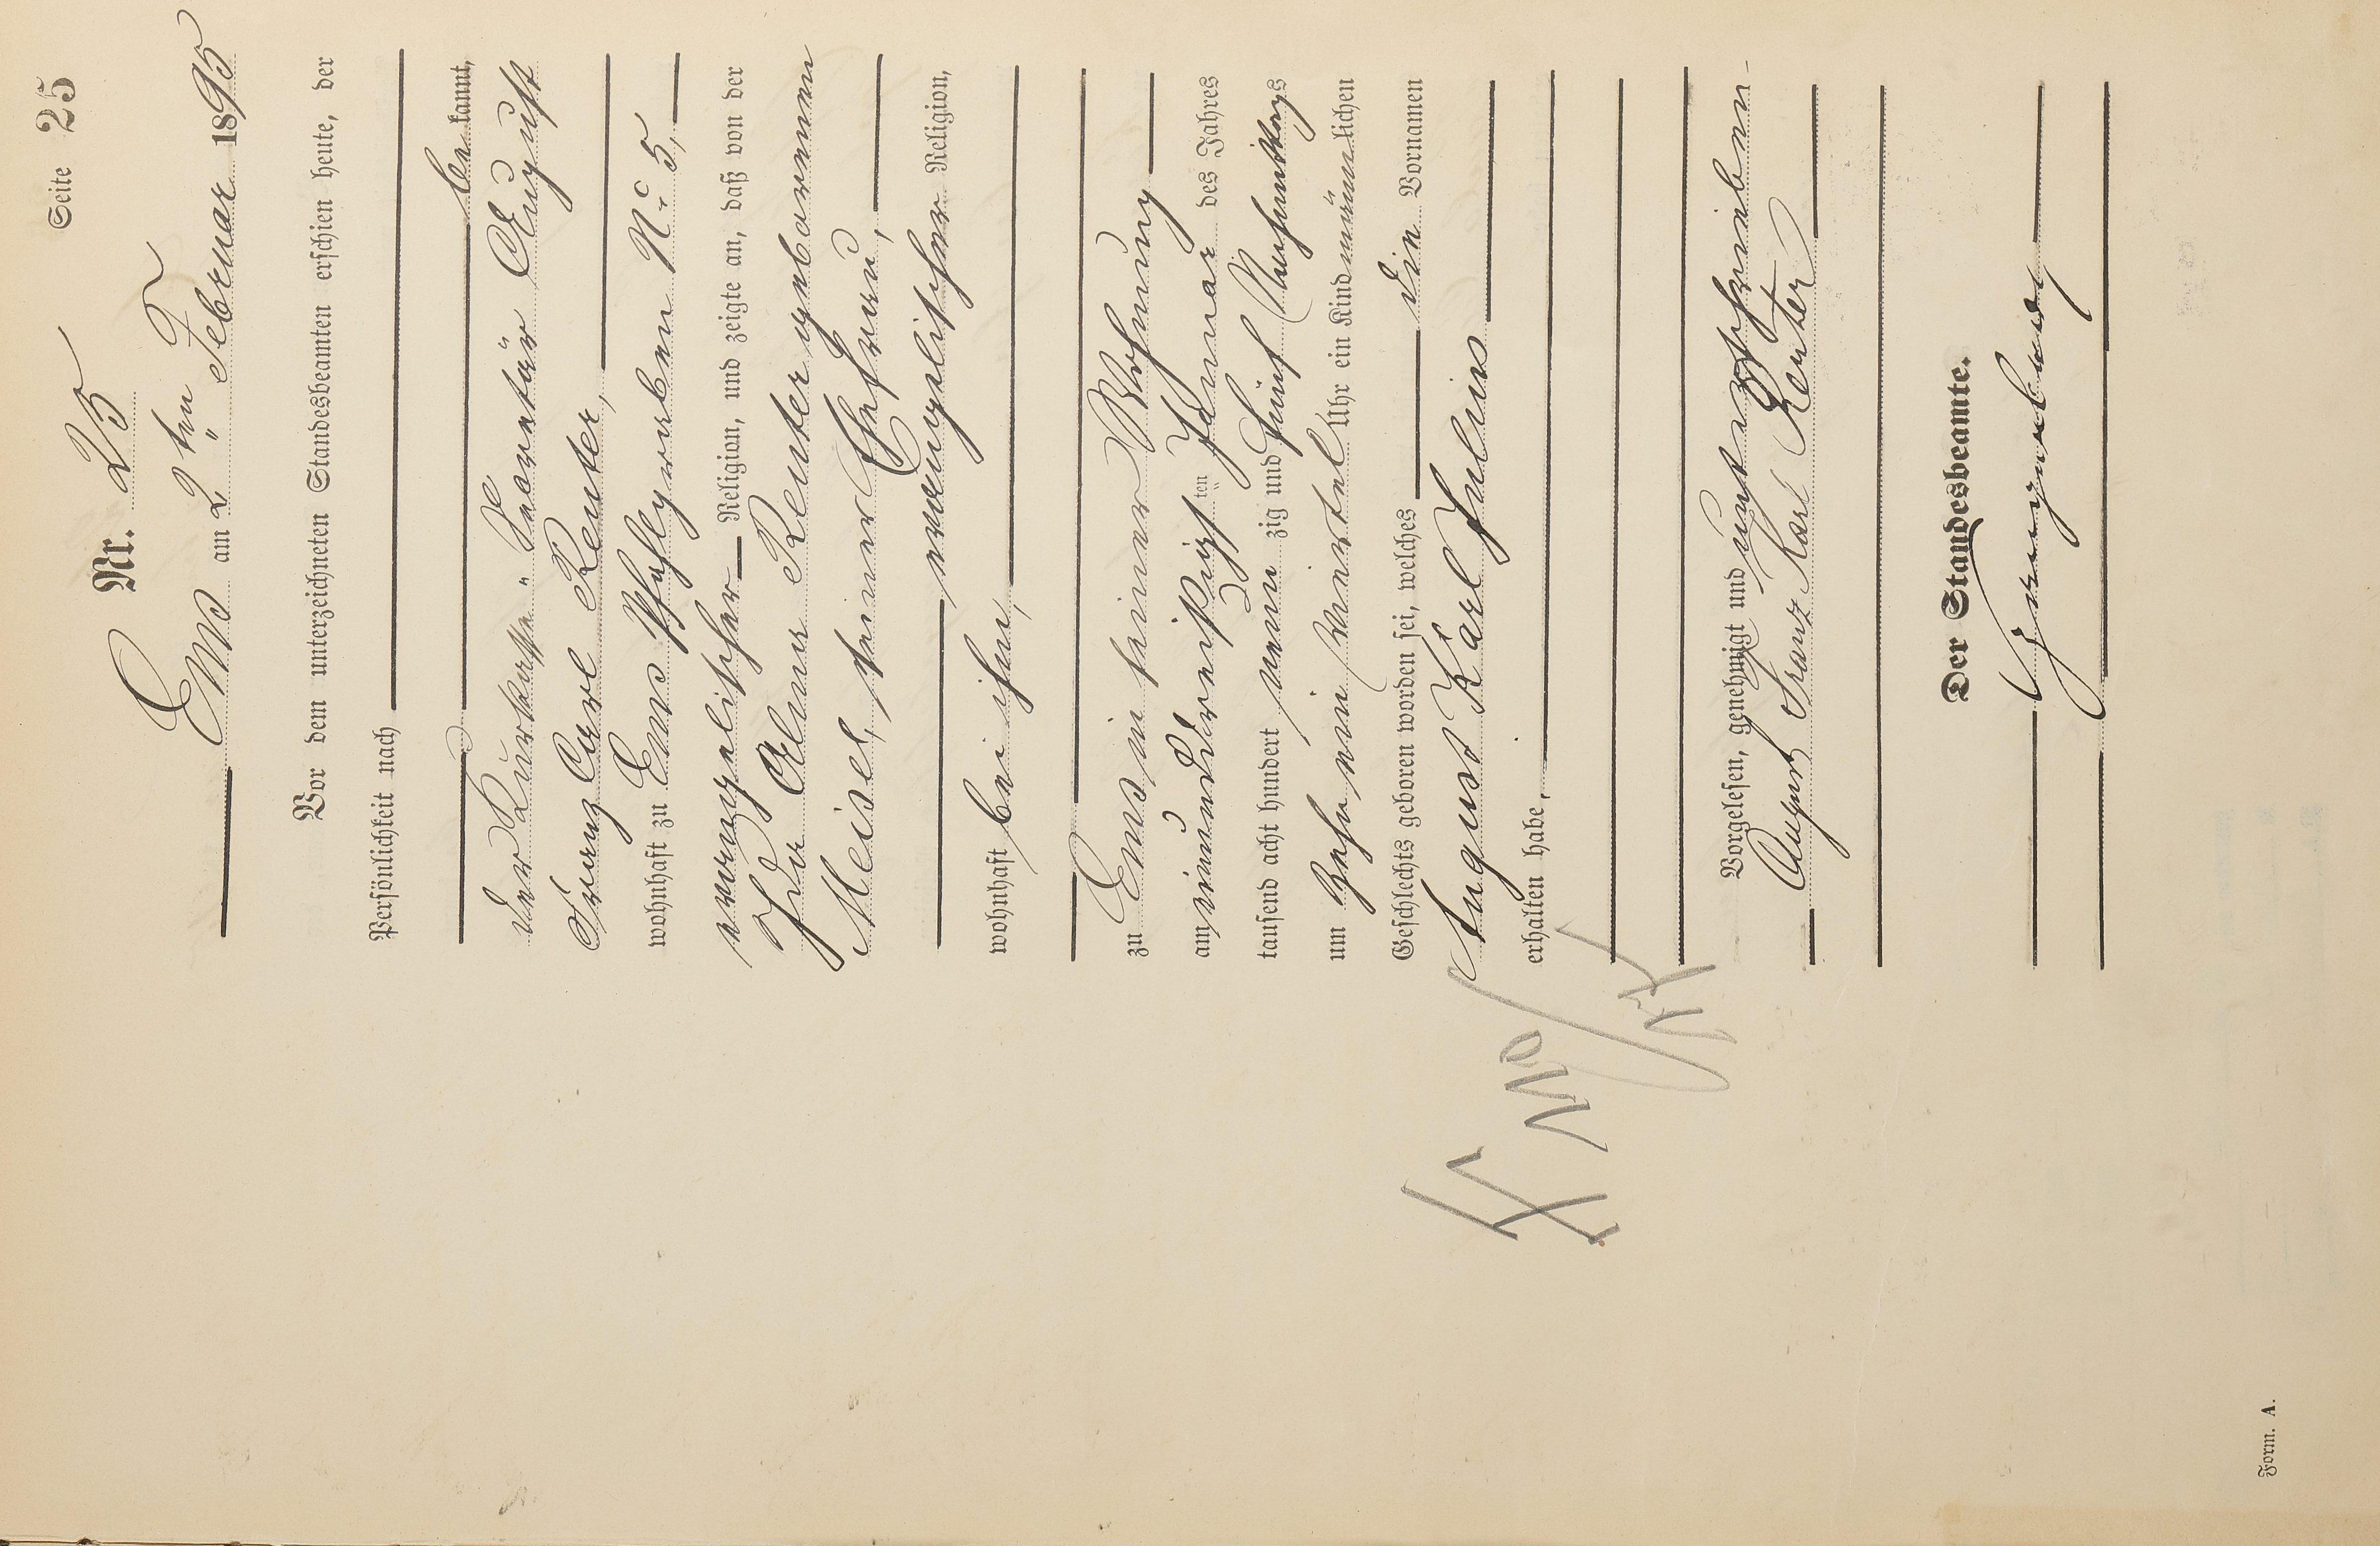 Seite 25
Nr. 25
Ems am 2ten Februar 1895
Vor dem unterzeichneten Standesbeamten erschien heute, der
Persönlichkeit nach
bekannt,
der Kurkasse-Secretär August
Franz Carl Reuter,
wohnhaft zu Ems Pfahlgraben No 5,
evangelischer Religion, und zeigte an, daß von der
Ida Alma Reuter geborenen
Meisel, seiner Ehefrau,
evangelischer Religion,
wohnhaft bei ihm,
zu Ems in seiner Wohnung
am einunddreißigsten Januar des Jahres
tausend acht hundert neunzig und fünf Nachmittags
um zehn ein viertel Uhr ein Kind männlichen
Geschlechts geboren worden sei, welches die Vornamen
August Karl Julius
erhalten habe.
Vorgelesen, genehmigt und unterschrieben
August Franz Karl Reuter
Der Standesbeamte.
Form. A.